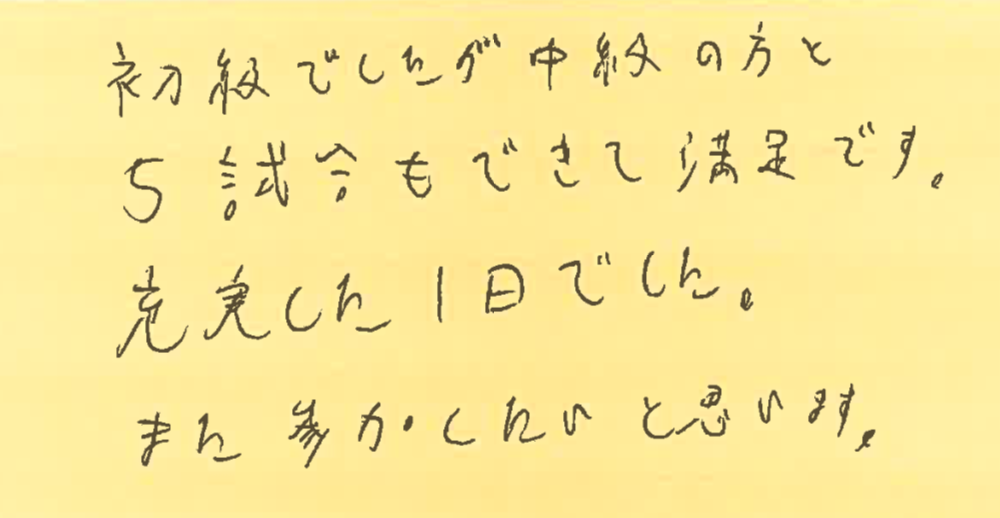 初級でしたが中級の方と
5試合もできて満足です。
充実した1日でした。
また参加したいと思います。